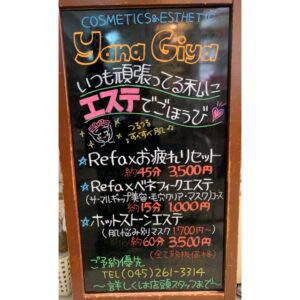 COSMETICS&ESTHETIC
Yana Giya
いつも頑張ってる私に
エステでごほうび
つるつる
すべすべ肌
☆Refa×お疲れリセット
約45分 3,500円
☆Refa×ベネフィークエステ
(サーマルギャップ美容・毛穴クリア・マスク)コース
約15分 1,000円
☆ホットストーンエステ
(肌悩み別マスク 1,700円〜)
約60分 3,500円
(全て税抜価格)
ご予約優先
TEL(045)261-3314
〜詳しくは店頭スタッフまで〜